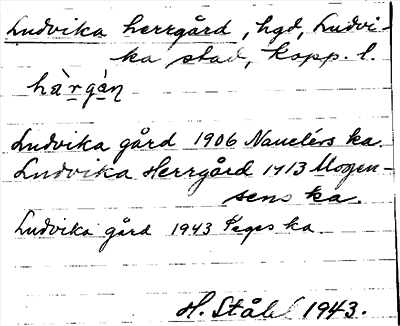 Ludvika herrgård, hgd, Ludvi-
ka stad, Kopp. l.
hàrgàn̥
Ludvika gård 1906 Nauclérs ka.
Ludvika Herrgård 1913 Mogen-
sens ka.
Ludvika gård 1943 ka
H. Ståhl 1943.